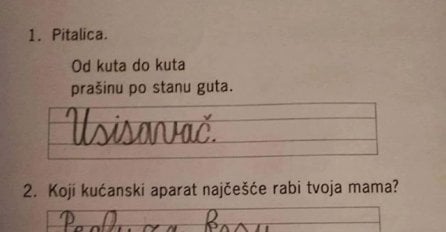 1. Pitalica.
Od kuta do kuta
prašinu po stanu guta.
Usisavač.
2. Koji kućanski aparat najčešće rabi tvoja mama?
za kosu